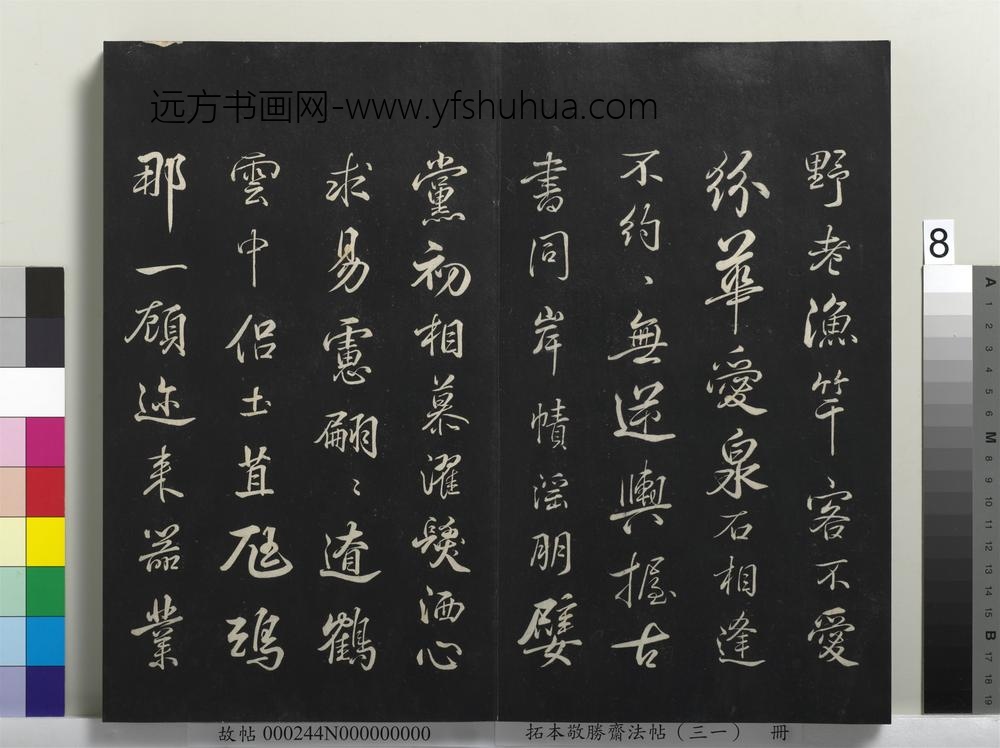 远方书画网-www.yfshuhua.com
野老漁竿客不愛
紛華愛泉石相逢
不約〻無逆輿握古
書同岸幘淫朋嬖
黨初相慕濯髮洒心
求易慮翩〻遼鶴
雲中侶土苴尫鴟
那一顧迩来器業
8
A 1 2 3 4 5 6 M 8 9 10 11 12 13 14 15 B 17 18 19
故帖 000244N000000000
拓本敬勝齋法帖（三一） 冊